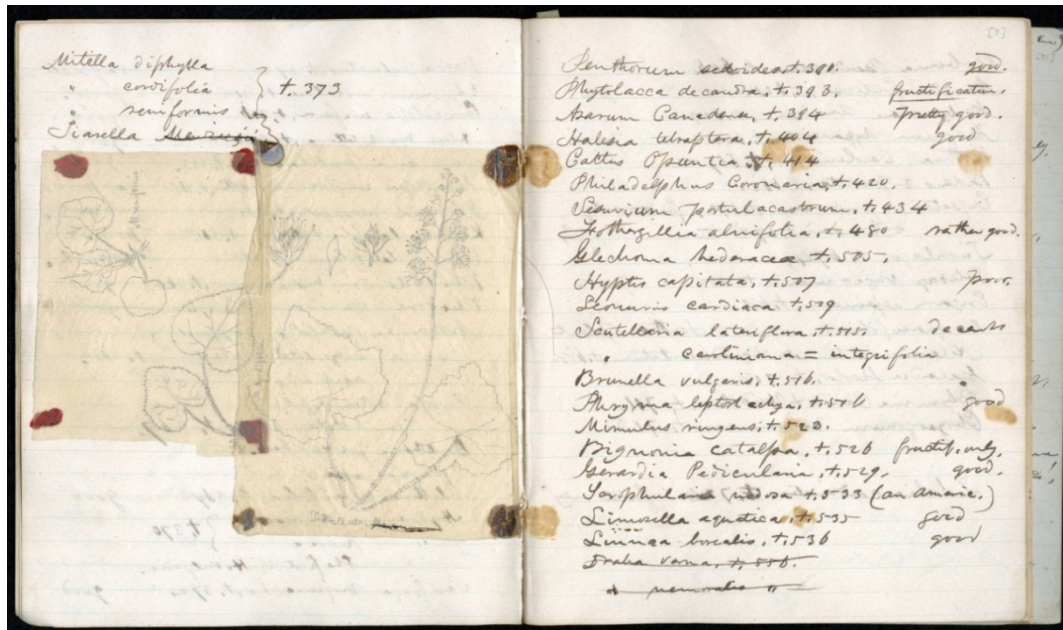 Mitella diphylla
" cordifolia
" reniformis
t. 373
Tiarella
[7]
Penthorum sedoides, t. 390. good.
Phytolacca decandra, t. 393. fructification.
Asarum Canadense, t. 394 Pretty good.
Halesia tetraptera, t. 404 good
Cactus Opuntia, t. 414
Philadelphus Coronaria, t. 420.
Sesuvium portulacastrum, t. 434
Fothergillia alnifolia, t. 480 rather good.
Glechoma hederacea t. 505.
Hyptis capitata, t. 507 Poor.
Leonuris cardiaca t. 509
Scutellaria lateriflora, t. 515.
" caroliniana = integrifolia
Brunella vulgaris, t. 516.
Phryma leptostachya, t. 516 good
Mimulus ringens, t. 523.
Bignonia catalpa, t. 526 fructif. only.
Gerardia Pedicularia, t. 529. good.
Scrophularia nodosa t. 533 (an Americ.)
Limosella aquatica, t. 535 good
Linnea borealis, t. 536 good
Draba verna, t. 556.
" nemoralis "